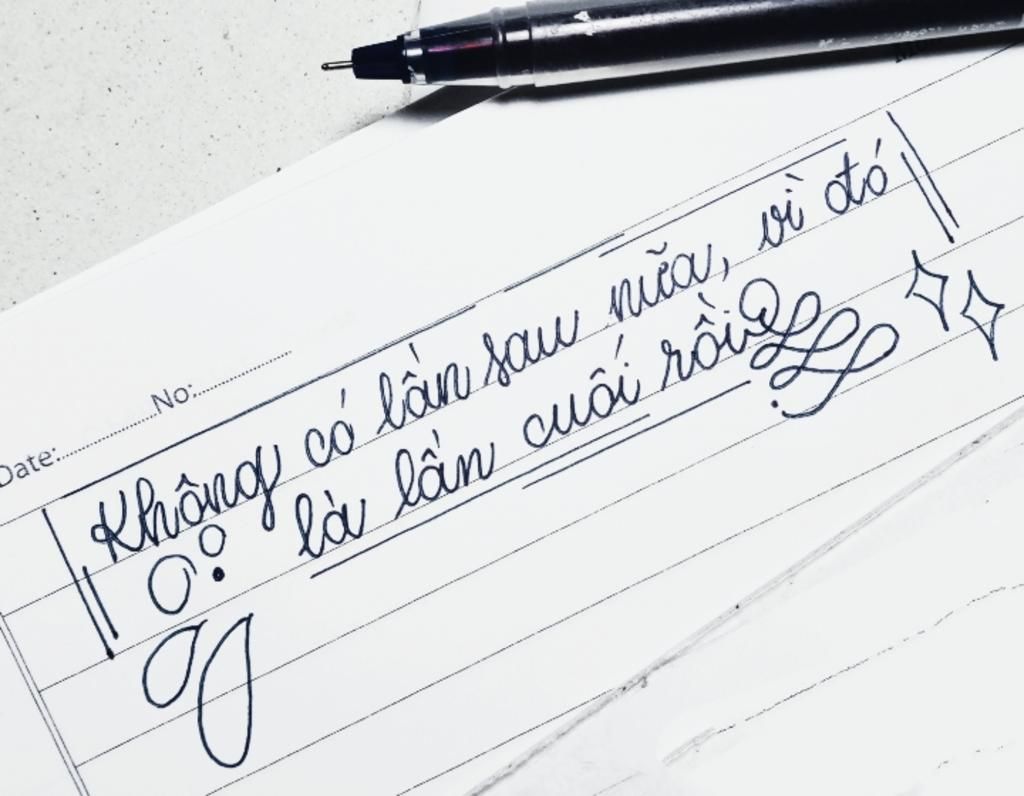 Date: No:
Không có lần sau nữa, vì đó
là lần cuối rồi